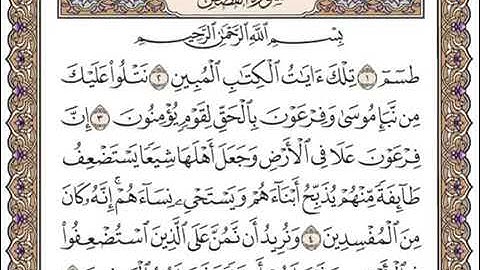 بِسْمِ ٱللَّهِ ٱلرَّحْمَٰنِ ٱلرَّحِيمِ
طسٓمٓ ١ تِلْكَ ءَايَٰتُ ٱلْكِتَٰبِ ٱلْمُبِينِ ٢ نَتْلُوا۟ عَلَيْكَ
مِن نَّبَإِ مُوسَىٰ وَفِرْعَوْنَ بِٱلْحَقِّ لِقَوْمٍ يُؤْمِنُونَ ٣ إِنَّ
فِرْعَوْنَ عَلَا فِى ٱلْأَرْضِ وَجَعَلَ أَهْلَهَا شِيَعًا يَسْتَضْعِفُ
طَآئِفَةً مِّنْهُمْ يُذَبِّحُ أَبْنَآءَهُمْ وَيَسْتَحْىِۦ نِسَآءَهُمْ ۚ إِنَّهُۥ كَانَ
مِنَ ٱلْمُفْسِدِينَ ٤ وَنُرِيدُ أَن نَّمُنَّ عَلَى ٱلَّذِينَ ٱسْتُضْعِفُوا۟